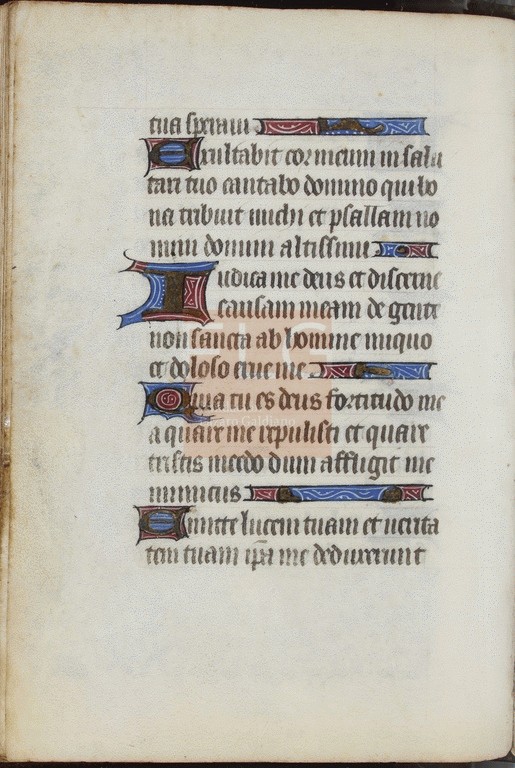 tua speraui
Exultabit cor meum in salu
tari tuo cantabo domino qui bo
na tribuit michi et psallam no
mini domini altissimi
Iudica me deus et discerne
causam meam de gente
non sancta ab homine iniquo
et doloso erue me
Quia tu es deus fortitudo me
a quare me repulisti et quare
tristis incedo dum affligit me
inimicus
Emitte lucem tuam et uerita
tem tuam ipa me deduxerunt